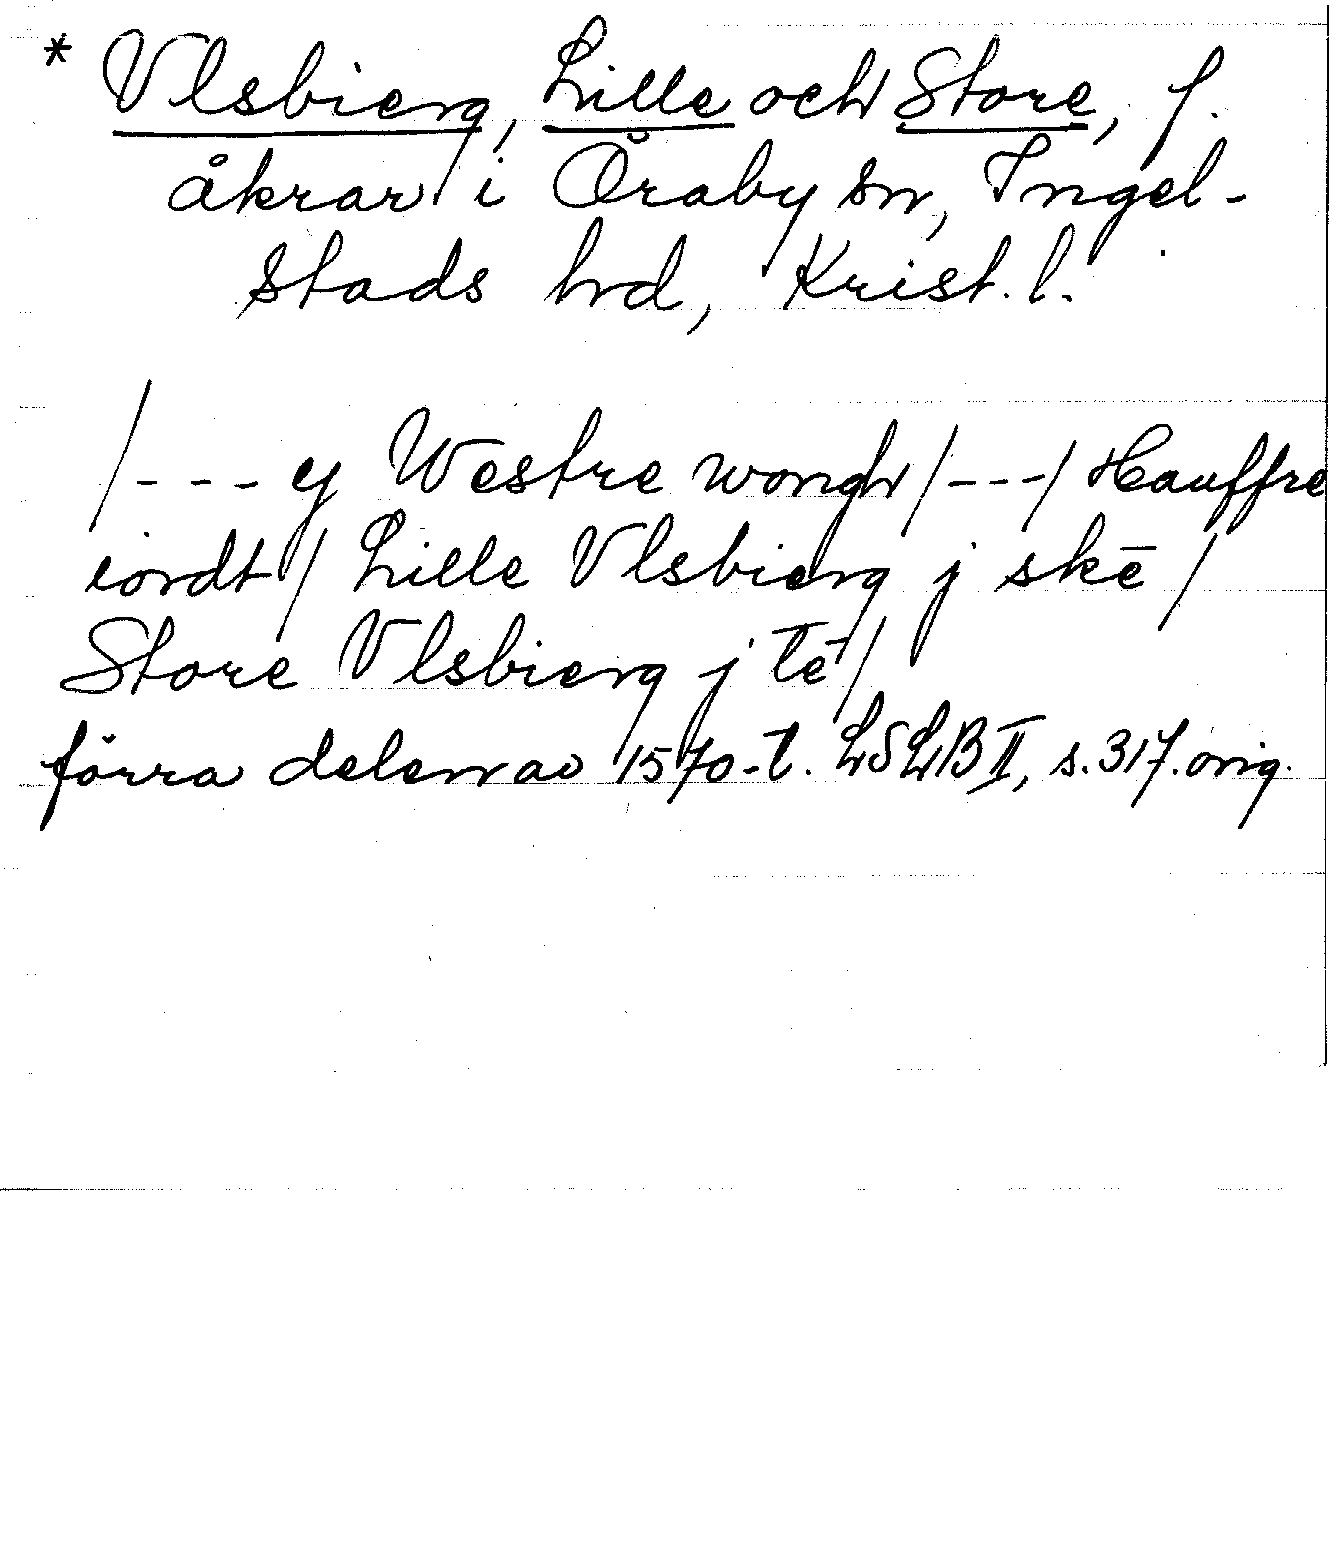 * Vlsbierg, Lille och Store, f.
åkrar i Öraby sn, Ingel-
stads hd, Krist. l.
/--- ij Westre wongh /---/ Hauffre
iordt / Lille Vlsbierg j skē /
Store Vlsbierg j t̄ē /
förra delen av 1570-t. LSLB II, s. 317. orig.